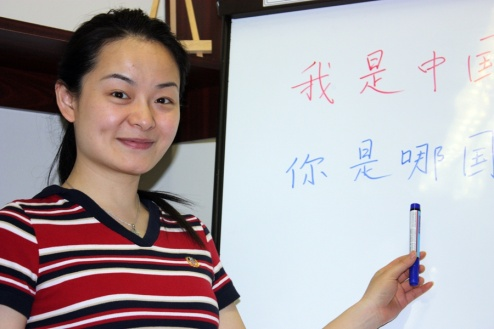 我是中国
你是哪国